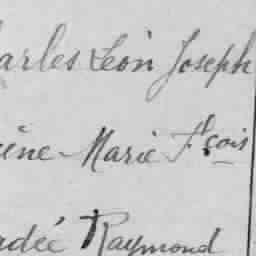 arles Léon Joseph
ine Marie Fçois
dée Raymond